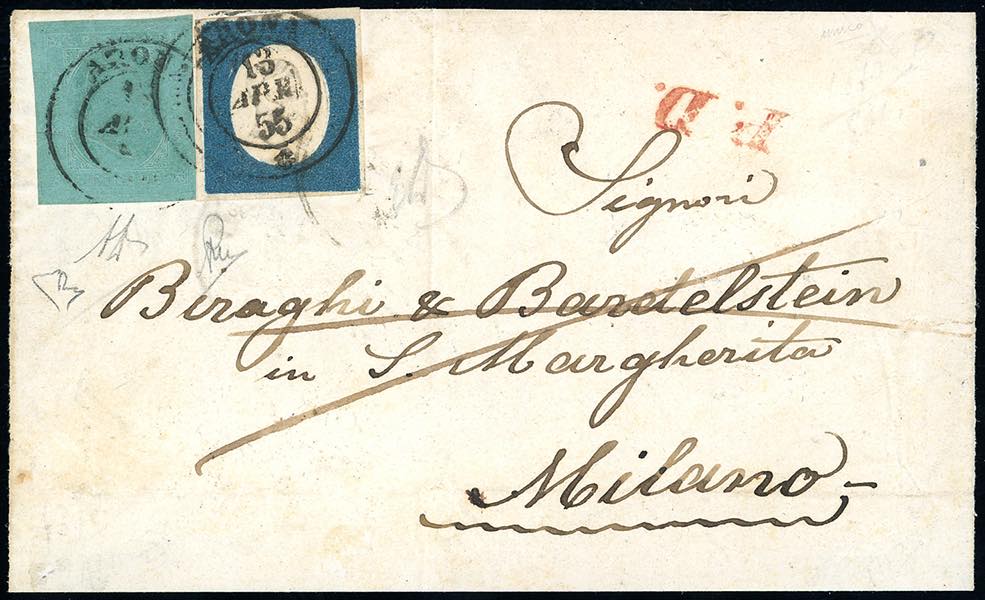 ARONA
ARONA
13
APR
55
P.D.
Signori
Biraghi & Bardelstein
in S. Margherita
Milano